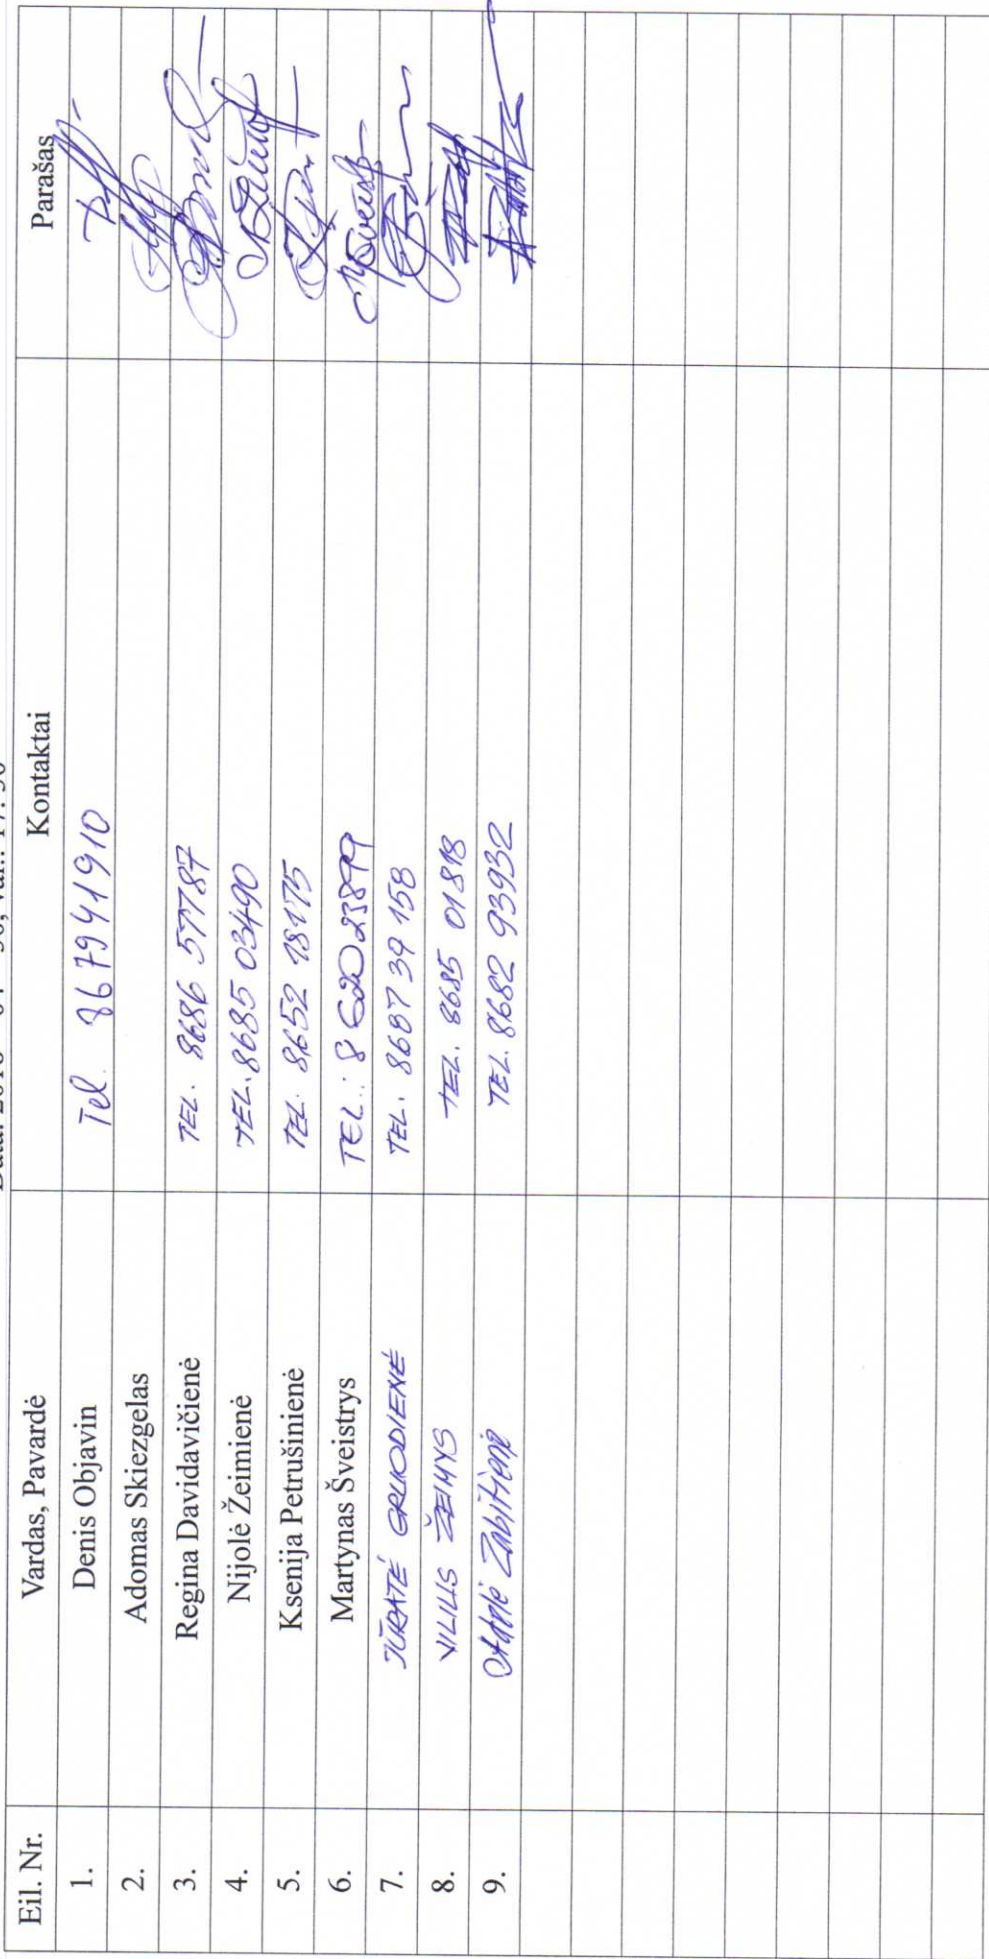 Eil. Nr. Vardas, Pavardė Kontaktai Parašas
1. Denis Objavin Tel. 867941910
2. Adomas Skiezgelas
3. Regina Davidavičienė TEL. 8686 57787
4. Nijolė Žeimienė TEL. 8685 03490
5. Ksenija Petrušinienė TEL. 8652 18175
6. Martynas Šveistrys TEL.: 8 620 23899
7. JŪRATĖ GRUODIENĖ TEL. 8687 39 158
8. VILIUS ŽEIMYS TEL. 8685 01818
9. TEL. 8682 93932